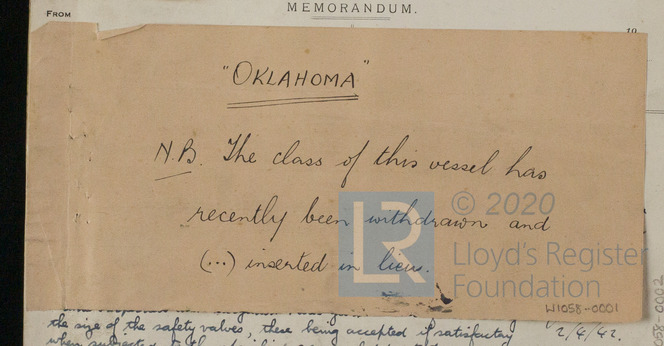 MEMORANDUM.
FROM
19
"OKLAHOMA"
N.B. The class of this vessel has
recently been withdrawn and
(...) inserted in lieu.
LR
© 2020
Lloyd's Register
Foundation
W1058-0001
the size of the safety valves, these being accepted if satisfactory
2/4/42.